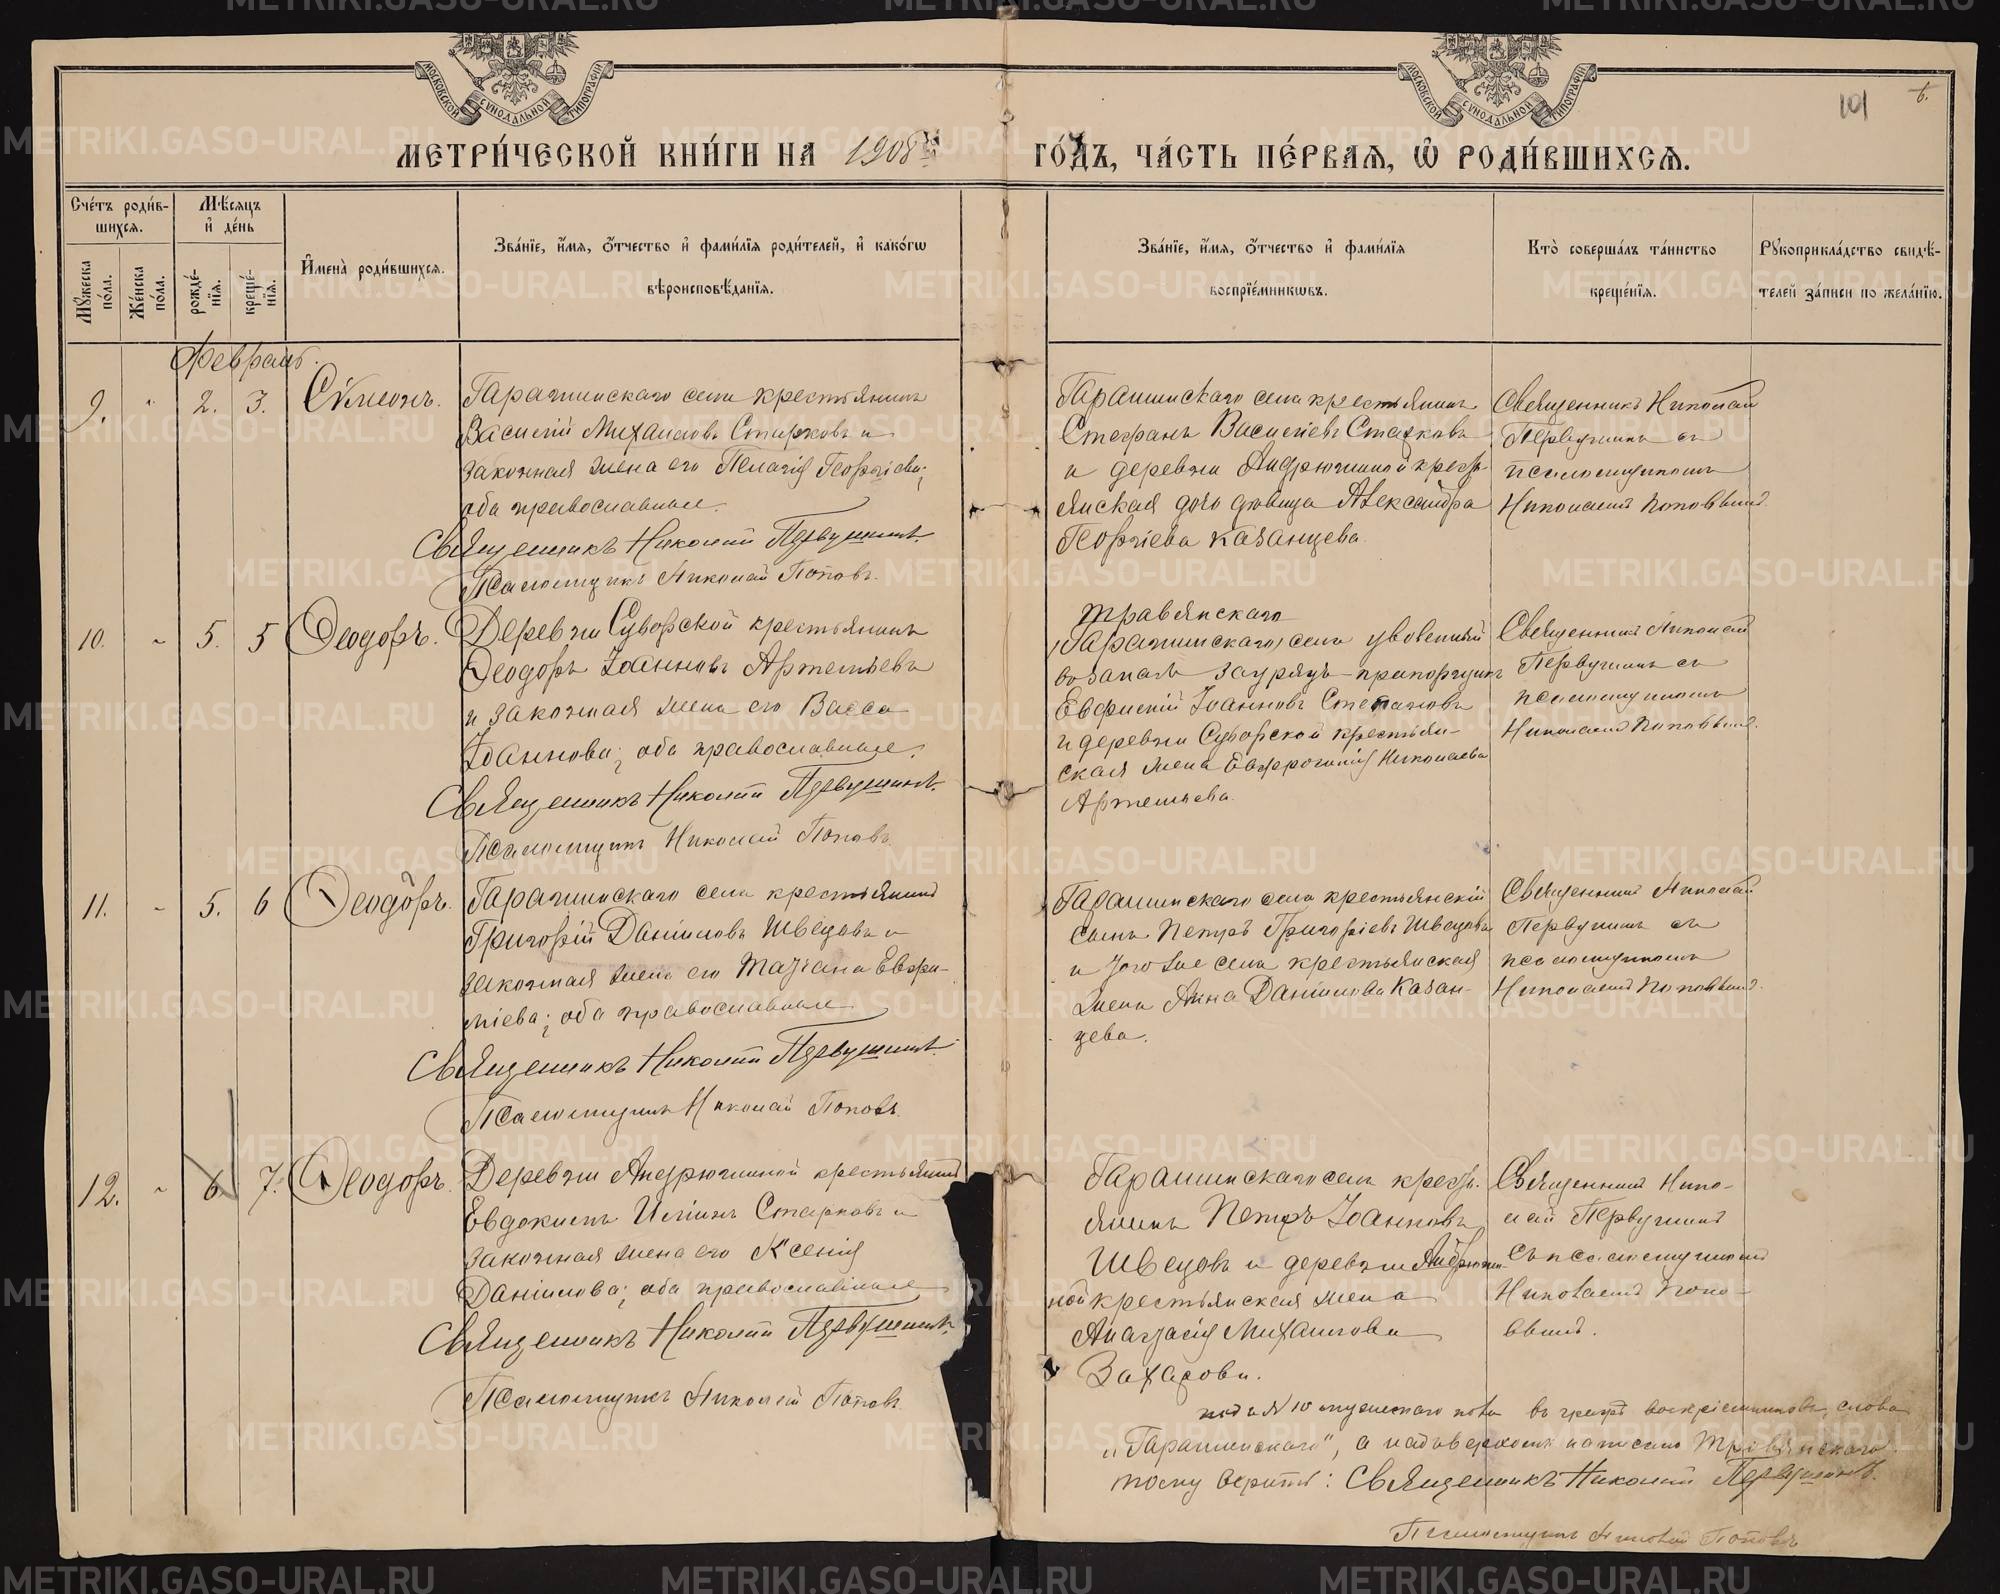 МОСКОВСКОЙ СѴНОДАЛЬНОЙ ТИПОГРАФІИ
МОСКОВСКОЙ СѴНОДАЛЬНОЙ ТИПОГРАФІИ
101
МЕТРИ́ЧЕСКОЙ КНИ́ГИ НА 1908й ГО́ДЪ, ЧА́СТЬ ПЕ́РВАѦ, Ѡ РОДИ́ВШИХСѦ.
Сче́тъ роди́вшихсѧ.
Мѣ́сѧцъ и҆ де́нь
Мꙋ́жеска по́ла.
Же́нска по́ла.
рожде́нїѧ.
креще́нїѧ.
И҆мена̀ роди́вшихсѧ.
Зва́нїе, и҆́мѧ, ѻ҆́тчество и҆ фами́лїѧ роди́телей, и҆ како́гѡ
вѣроисповѣ́данїѧ.
Зва́нїе, и҆́мѧ, ѻ҆́тчество и҆ фами́лїѧ
воспрїе́мникѡвъ.
Кто̀ соверша́лъ та́инство
креще́нїѧ.
Рꙋкоприкла́дство свидѣ́-
телей за́писи по жела́нїю.
Февраль.
9. " 2. 3. Сѵмеонъ.
Гарашинскаго села крестьянинъ
Василій Михаиловъ Старковъ и
законная жена его Пелагія Георгіева;
оба православные.
Священникъ Николай Первушинъ.
Псаломщикъ Николай Поповъ.
Гарашинскаго села крестьянинъ
Стефанъ Васильевъ Старковъ
и деревни Андрюшиной кресть-
янская дочь девица Александра
Георгіева Казанцева.
Священникъ Николай
Первушинъ съ
псаломщикомъ
Николаемъ Поповымъ.
10. " 5. 5 Ѳеодоръ.
Деревни Суворской крестьянинъ
Ѳеодоръ Іоанновъ Артемьевъ
и законная жена его Васса
Іоаннова; оба православные.
Священникъ Николай Первушинъ.
Псаломщикъ Николай Поповъ.
Травянскаго
(Гарашинскаго) села уволенный
въ запасъ заурядъ-прапорщикъ
Евфимій Іоанновъ Степановъ
и деревни Суворской крестьян-
ская жена Евфросинія Николаева
Артемьева.
Священникъ Николай
Первушинъ съ
псаломщикомъ
Николаемъ Поповымъ.
11. " 5. 6 Ѳеодоръ.
Гарашинскаго села крестьянинъ
Григорій Даніиловъ Швецовъ и
законная жена его Татіана Евфи-
міева; оба православные
Священникъ Николай Первушинъ.
Псаломщикъ Николай Поповъ.
Гарашинскаго села крестьянскій
сынъ Петръ Григоріевъ Швецовъ
и того же села крестьянская
жена Анна Даніилова Казан-
цева.
Священникъ Николай
Первушинъ съ
псаломщикомъ
Николаемъ Поповымъ.
12. " 6. 7. Ѳеодоръ.
Деревни Андрюшиной крестьянинъ
Евдокимъ Иліинъ Старковъ и
законная жена его Ксенія
Даніилова; оба православные
Священникъ Николай Первушинъ.
Псаломщикъ Николай Поповъ.
Гарашинскаго села кресть-
янинъ Петръ Іоанновъ
Швецовъ и деревни Андрюши-
ной крестьянская жена
Анастасія Михаилова
Захарова.
Священникъ Нико-
лай Первушинъ
съ псаломщикомъ
Николаемъ Попо-
вымъ.
подъ № 10 мужескаго пола въ графѣ воспріемниковъ, слова
„Гарашинскаго", а надъ верхомъ написано Травянскаго
тому верить: Священникъ Николай Первушинъ.
Псаломщикъ Николай Поповъ